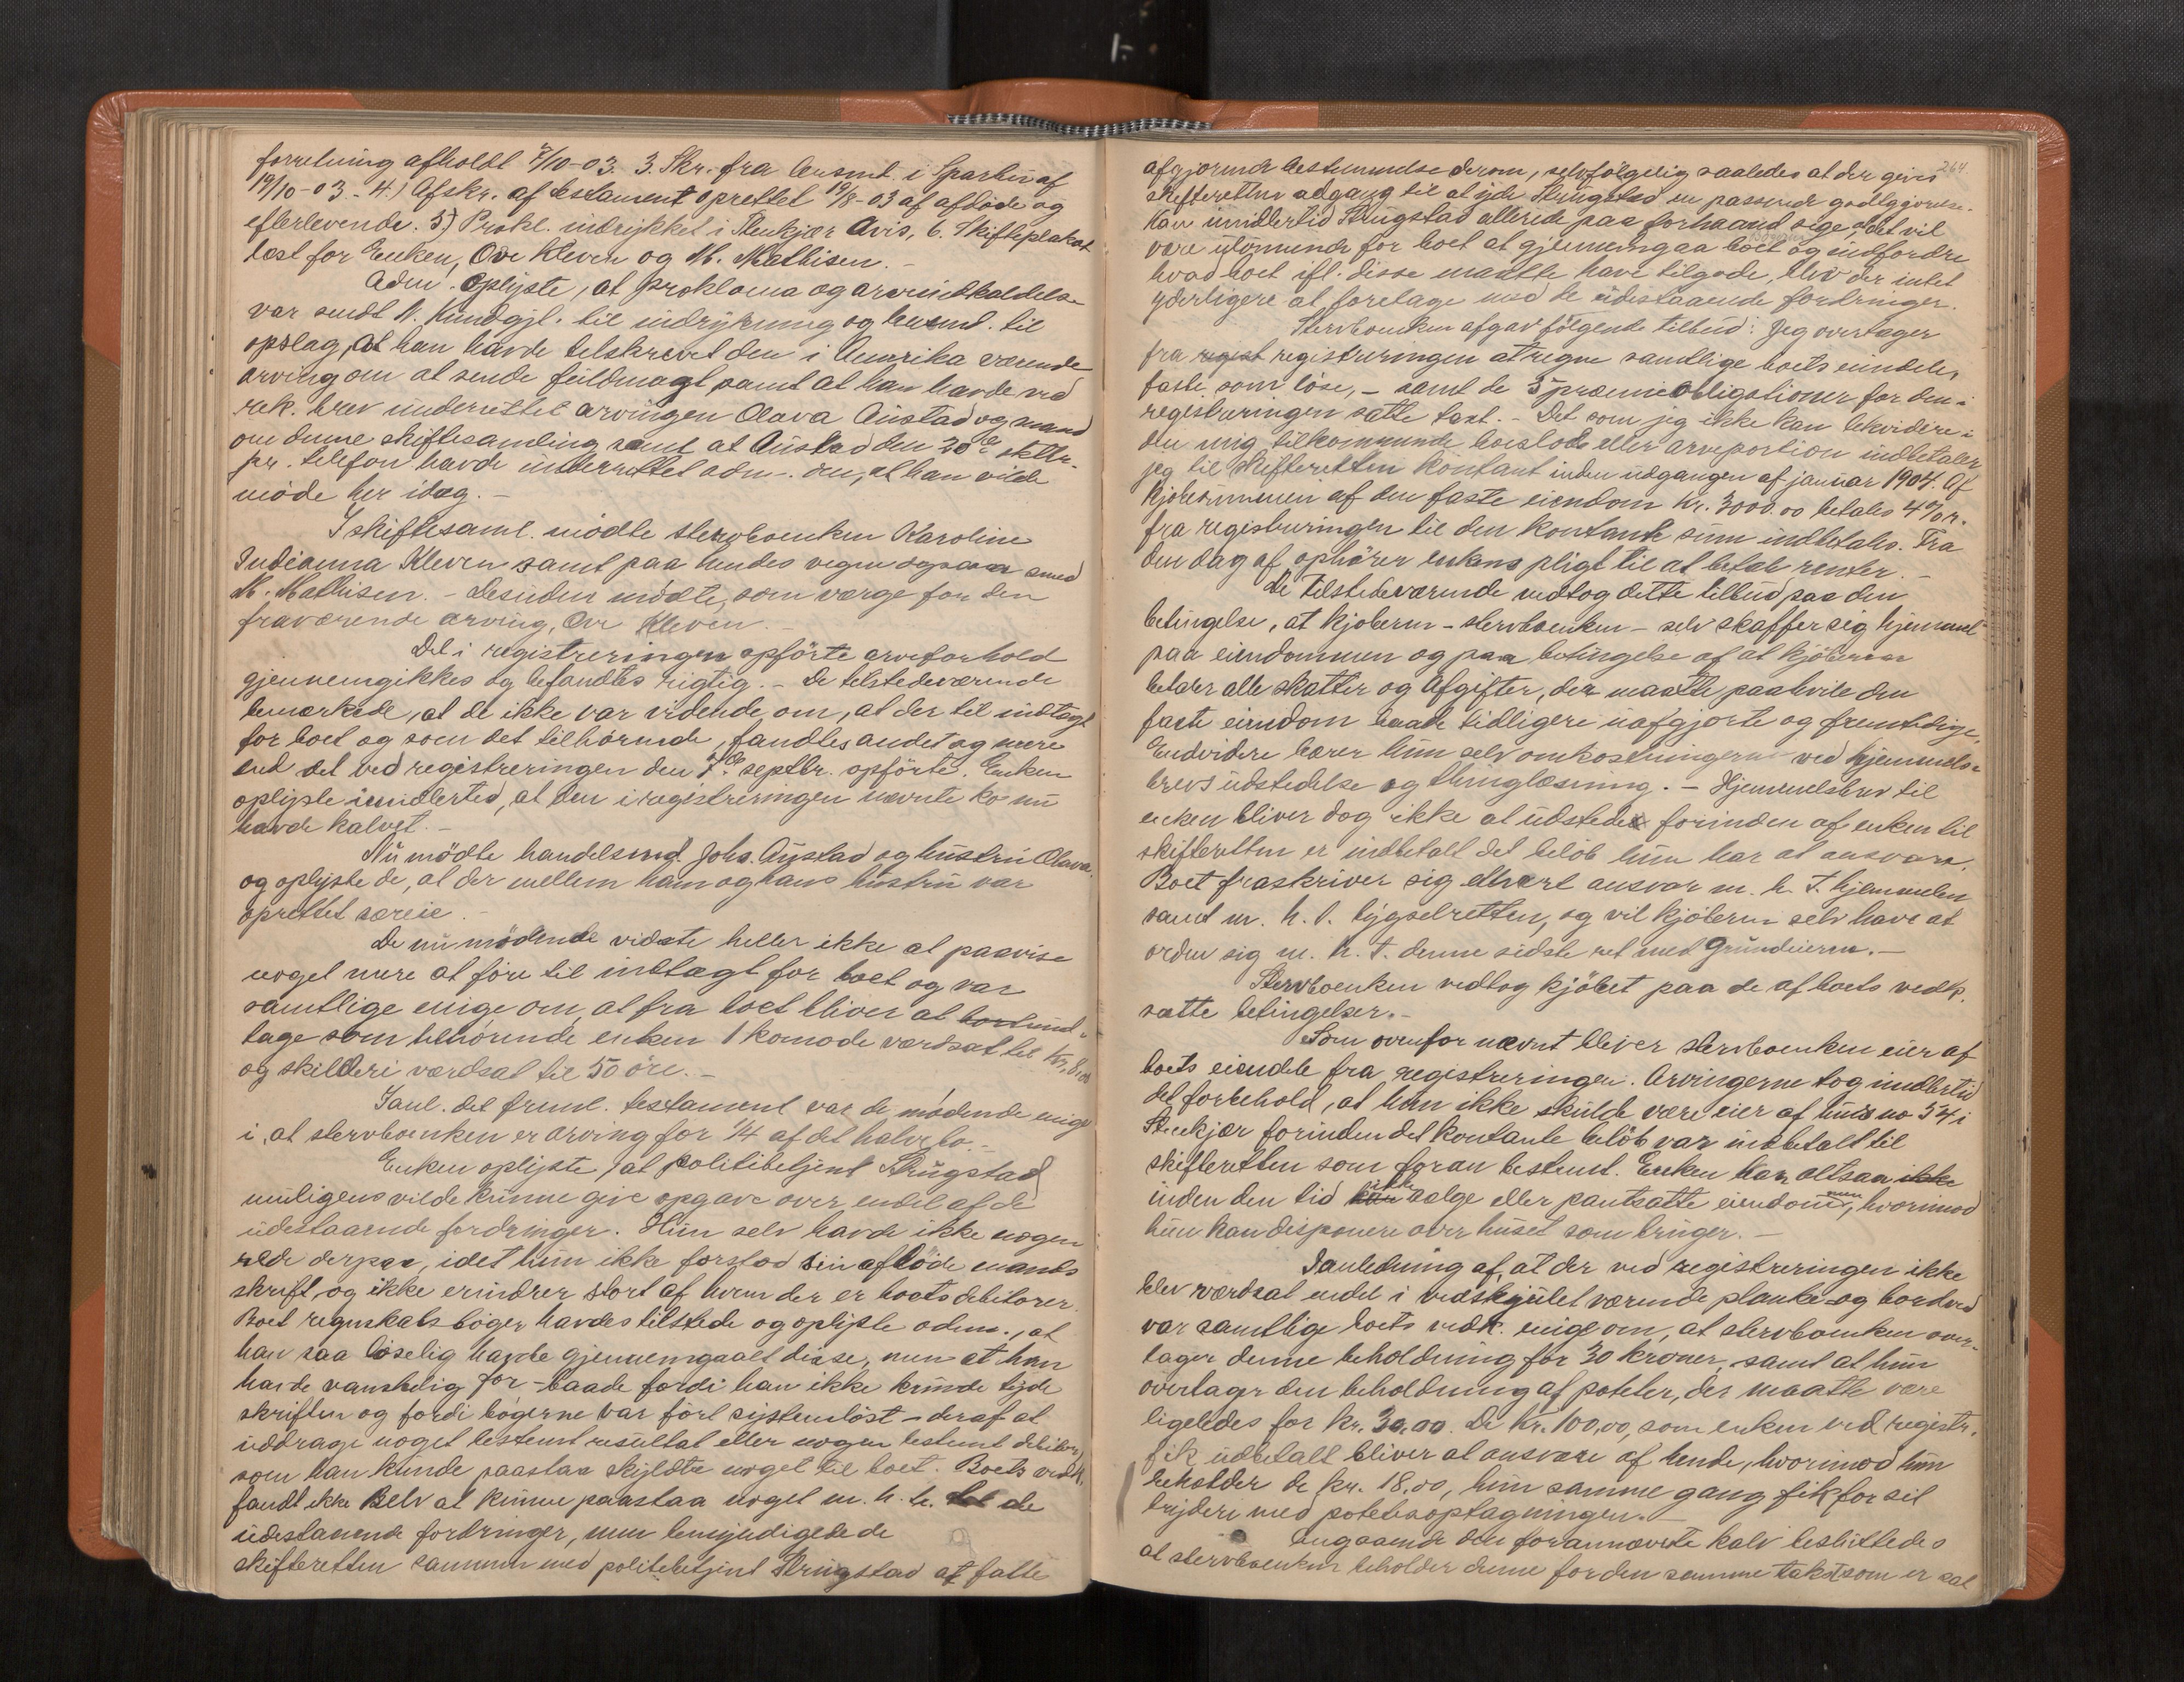 forretning afholdt 7/10-03. 3. Skr. fra lensmd. i Sparbu af
19/10-03. 4.) Afskr. af testament oprettet 19/8-03 af afdöde og
efterlevende. 5) Prokl. indrykket i Stenkjær Avis, 6. Skifteplakat
læst for Enken, Ove Kleven og M. Mathisen. -
Adm. oplyste, at proklama og arveindkaldelse
var sendt N. Kundgjl. til indrykning og lensmd. til
opslag, at han havde tilskrevet den i Amerika værende
arving om at sende fuldmagt, samt at han havde ved
rek. brev underrettet arvingen Olava Austad og mand
om denne skiftesamling samt at Austad den 20de sktbr.
pr. telefon havde underrettet adm. om, at han vilde
möde her idag. -
I skiftesaml. mödte stervboenken Karoline
Indianna Kleven samt paa hendes vegne ogsaa smed
M. Mathisen. - Desuden mödte, som værge for den
fraværende arving, Ove Kleven. -
Det i registreringen opförte arveforhold
gjennemgikkes og befandtes rigtig. - De tilstedeværende
bemærkede, at de ikke var vidende om, at der til indtægt
for boet og som det tilhörende, fandtes andet og mere
end det ved registreringen den 7de septbr. opförte. Enken
oplyste imidlertid, at den i registreringen nævnte ko nu
havde kalvet. -
Nu mödte handelsmd. Johs. Austad og hustru Olava
og oplyste de, at der mellem ham og hans hustru var
oprettet særeie. -
De nu mödende vidste heller ikke at paavise
noget mere at före til indtægt for boet og var
samtlige enige om, at fra boet bliver at bortund-
tage som tilhörende enken 1 komode værdsat til kr. 8,00
og skilderi værdsat til 50 öre. -
I anl. det freml. testament var de mödende enige
i, at stervboenken er arving for 1/4 af det halve bo. -
Enken oplyste, at politibetjent Strugstad
muligens vilde kunne give opgave over endel af de
udestaaende fordringer. Hun selv havde ikke nogen
rede derpaa, idet hun ikke forstod sin afdöde mands
skrift, og ikke erindrer stort af hvem der er boets debitorer.
Boet regnskabsböger havdes tilstede og oplyste adm., at
han saa löselig havde gjennemgaaet disse, men at han
havde vanskelig for - baade fordi han ikke kunde tyde
skriften og fordi bögerne var fört systemlöst - deraf at
uddrage noget bestemt resultat eller nogen bestemt debitor,
som han kunde paastaa skyldte noget til boet. Boets vedk.
fandt ikke selv at kunne paastaa noget m. h. t. de
udestaaende fordringer, men bemyndigede de
skifteretten sammen med politibetjent Strugstad at fatte
264
afgjörende bestemmelse derom, selvfölgelig saaledes at der gives
skifteretten adgang til at yde Strugstad en passende godtgjörelse.
Kan imidlertid Strugstad allerede paa forhaand sige, det vil
være ulönnende for boet at gjennemgaa boet og indfordre
hvad boet ifl. disse maatte have tilgode, blev der intet
yderligere at foretage med de udestaaende fordringer.
Stervboenken afgav fölgende tilbud: Jeg overtager
fra regist registreringen at regne samtlige boets eiendele,
faste som löse, - samt de 3 præmieobligationer for den i
registreringen satte takst. - Det som jeg ikke kan likvidere i
den mig tilkommende boeslod eller arveportion indbetaler
jeg til skifteretten kontant inden udgangen af januar 1904. Af
kjöbesummen af den faste eiendom kr. 3000.00 betales 4% r.
fra registreringen til den kontante sum indbetales. Fra
den dag af ophörer enkens pligt til at betale renter. -
De tilstedeværende vedtog dette tilbud paa den
betingelse, at kjöberen - stervboenken - selv skaffer sig hjemmel
paa eiendommen og paa betingelse af at kjöberen
betaler alle skatter og afgifter, der maatte paahvile den
faste eiendom baade tidligere uafgjorte og fremtidige.
Endvidere bærer hun selv omkostningerne ved hjemmels-
brevs udstedelse og thinglæsning. - Hjemmelsbrev til
enken bliver dog ikke at udstede forinden af enken til
skifteretten er indbetalt det belöb hun har at ansvare.
Boet fraskriver sig ethvert ansvar m. h. t. hjemmelen
samt m. h. t. bygselretten, og vil kjöberen selv have at
ordne sig m. h. t. denne sidste ret med grundeieren. -
Stervboenken vedtog kjöbet paa de af boets vedk.
satte betingelser. -
Som ovenfor nævnt bliver stervboenken eier af
boets eiendele fra registreringen. Arvingerne tog imidlertid
det forbehold, at hun ikke skulde være eier af hus no 54 i
Stenkjær forinden det kontante belöb var indbetalt til
skifteretten som foran bestemt. Enken kan altsaa ikke
inden den tid kan ikke sælge eller pantsætte eiendommen, hvorimod
hun kan disponere over huset som bruger. -
I anledning af, at der ved registreringen ikke
blev værdsat endel i vedskjulet værende planke- og bordved
var samtlige boets vedk. enige om, at stervboenken over-
tager denne beholdning for 30 kroner, samt at hun
overtager den beholdning af poteter, der maatte være
ligeledes for kr. 30.00. De kr. 100,00, som enken ved registr.
fik udbetalt bliver at ansvare af hende, hvorimod hun
beholder de kr. 18,00, hun samme gang fik for sit
bryderi med potetesoptagningen. -
Angaaende den forannævnte kalv besluttedes
at stervboenken beholder denne for den samme takst som er sat